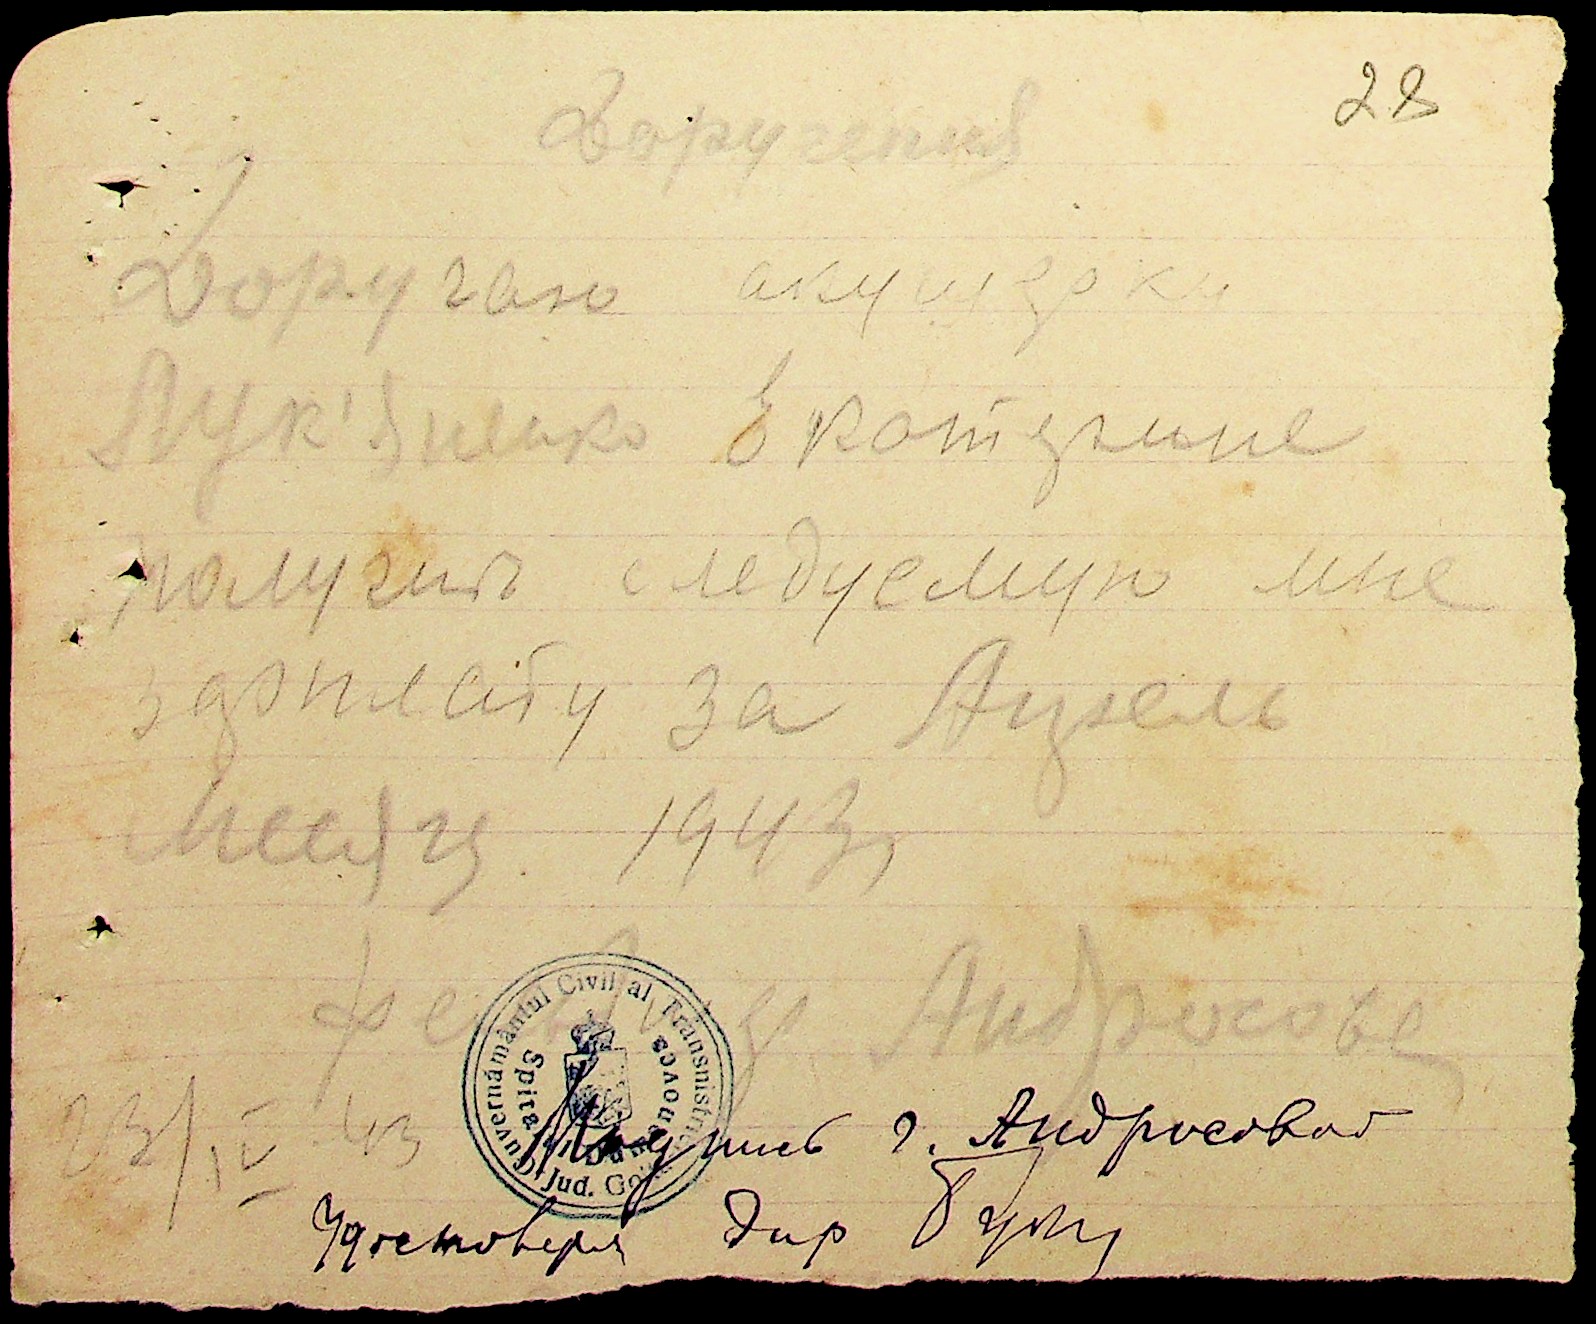 28
Доручения
Доручаю акушерки
Лук'яненко Екатерине
получить следуемую мне
зарплату за Апрель
месяц 1943г
Андросове
Guvernământul Civil al Transnistriei
Spitalul
Jud. Golta
23/IV 43
Подпись г. Андросовой
Удостоверя дир